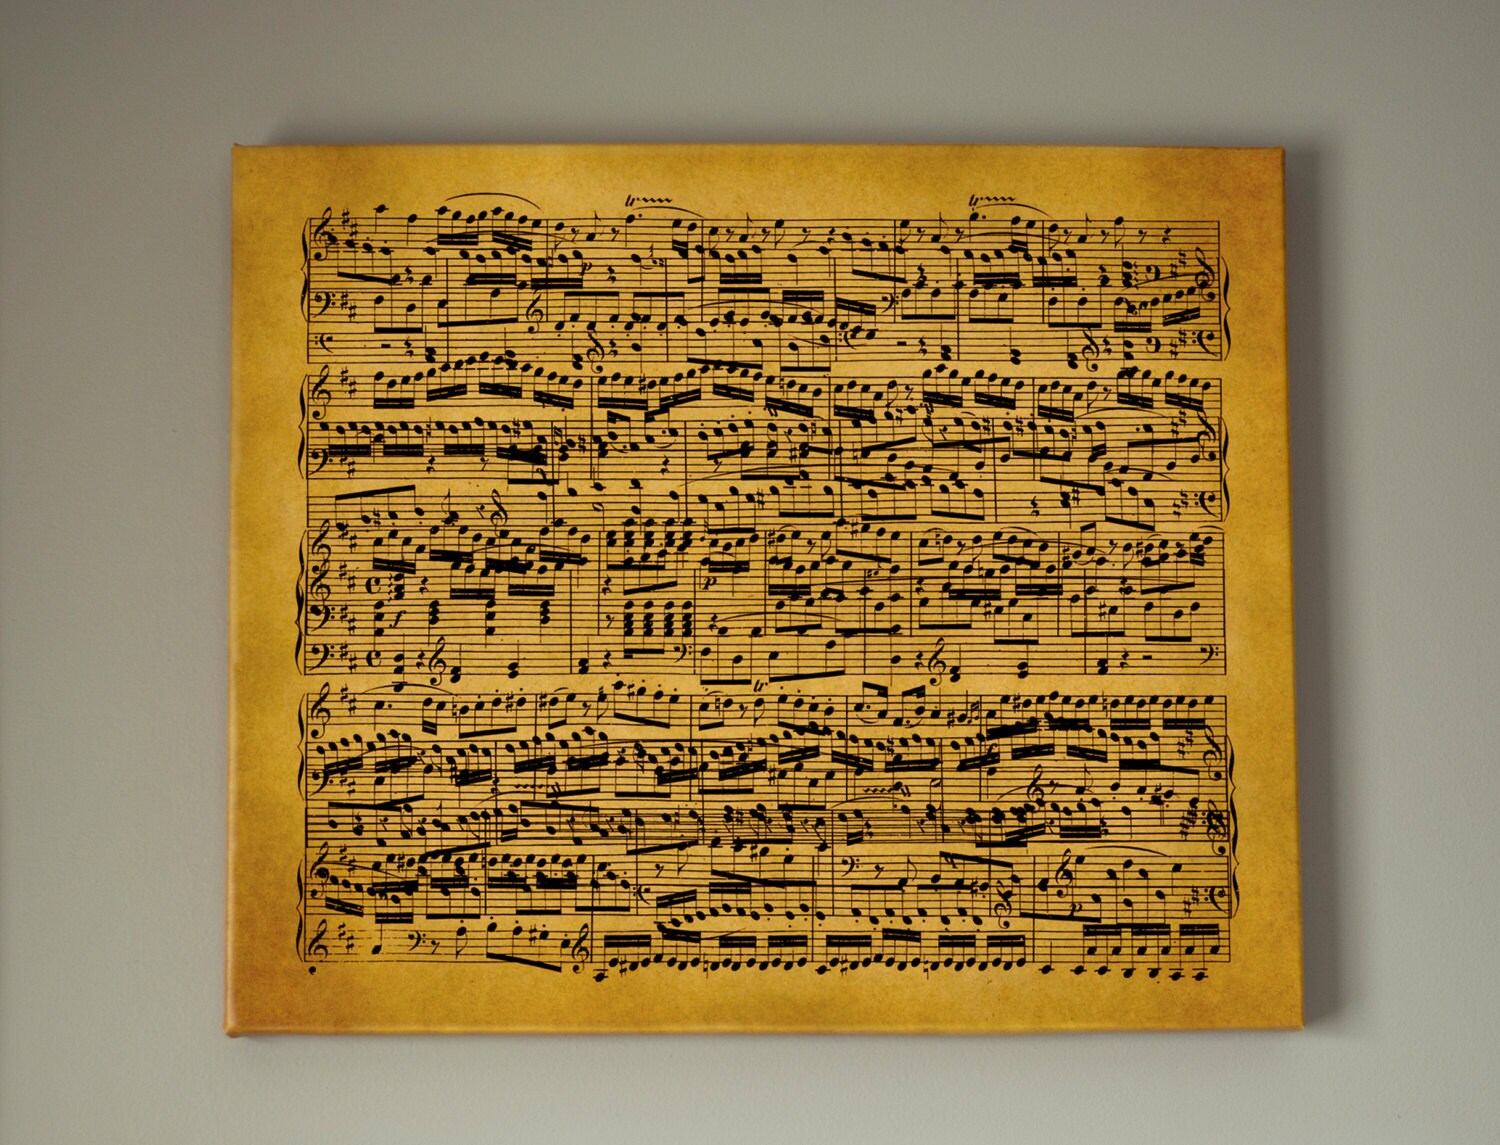 tr tr
p
p
f
tr
p